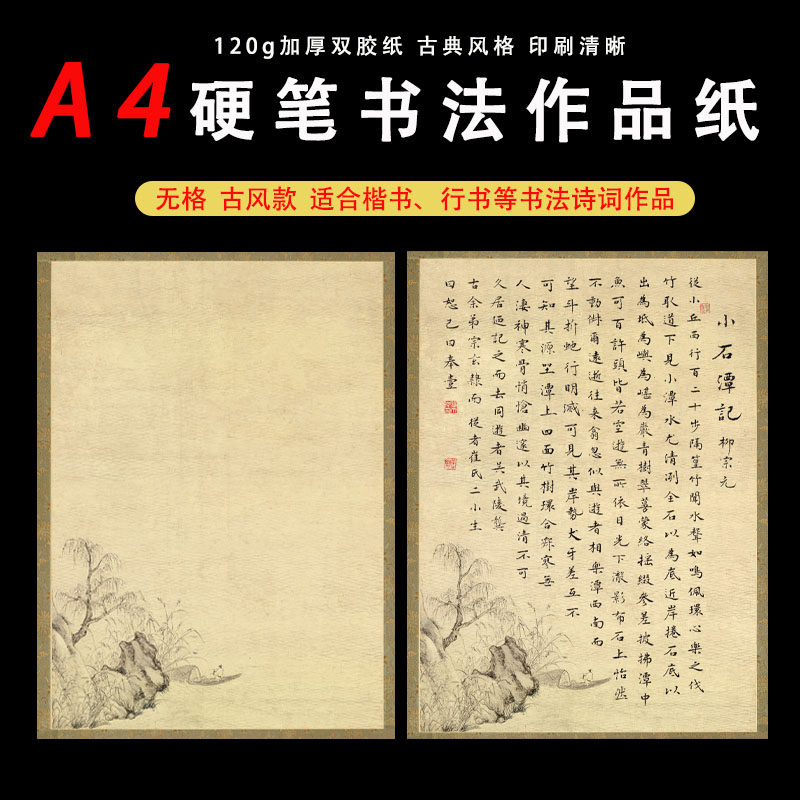 120g加厚双胶纸 古典风格 印刷清晰
A4硬笔书法作品纸
无格 古风款 适合楷书、行书等书法诗词作品
小石潭記 柳宗元
從小丘西行百二十步隔篁竹聞水聲如鳴佩環心樂之伐
竹取道下見小潭水尤清冽全石以為底近岸捲石底以
出為坻為嶼為嵁為巖青樹翠蔓蒙絡搖綴參差披拂潭中
魚可百許頭皆若空遊無所依日光下澈影布石上怡然
不動俶爾遠逝往來翕忽似與遊者相樂潭西南而
望斗折蛇行明滅可見其岸勢犬牙差互不
可知其源坐潭上四面竹樹環合寂寥無
人淒神寒骨悄愴幽邃以其境過清不可
久居迺記之而去同遊者吳武陵龔
古余弟宗玄隸而從者崔氏二小生
曰恕己曰奉壹